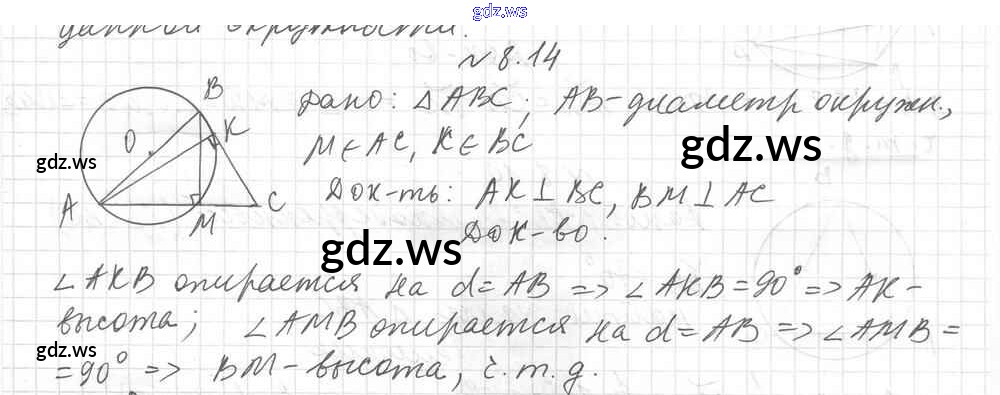 gdz.ws
данной окружности.
№ 8.14
Дано: △ABC; AB-диаметр окружн.,
M∈AC, K∈BC
Док-ть: AK⊥BC, BM⊥AC
Док-во.
∠AKB опирается на d=AB => ∠AKB=90° => AK-
высота; ∠AMB опирается на d=AB => ∠AMB=
=90° => BM-высота, ч.т.д.
B
K
O
A
M
C
gdz.ws
gdz.ws
gdz.ws
gdz.ws